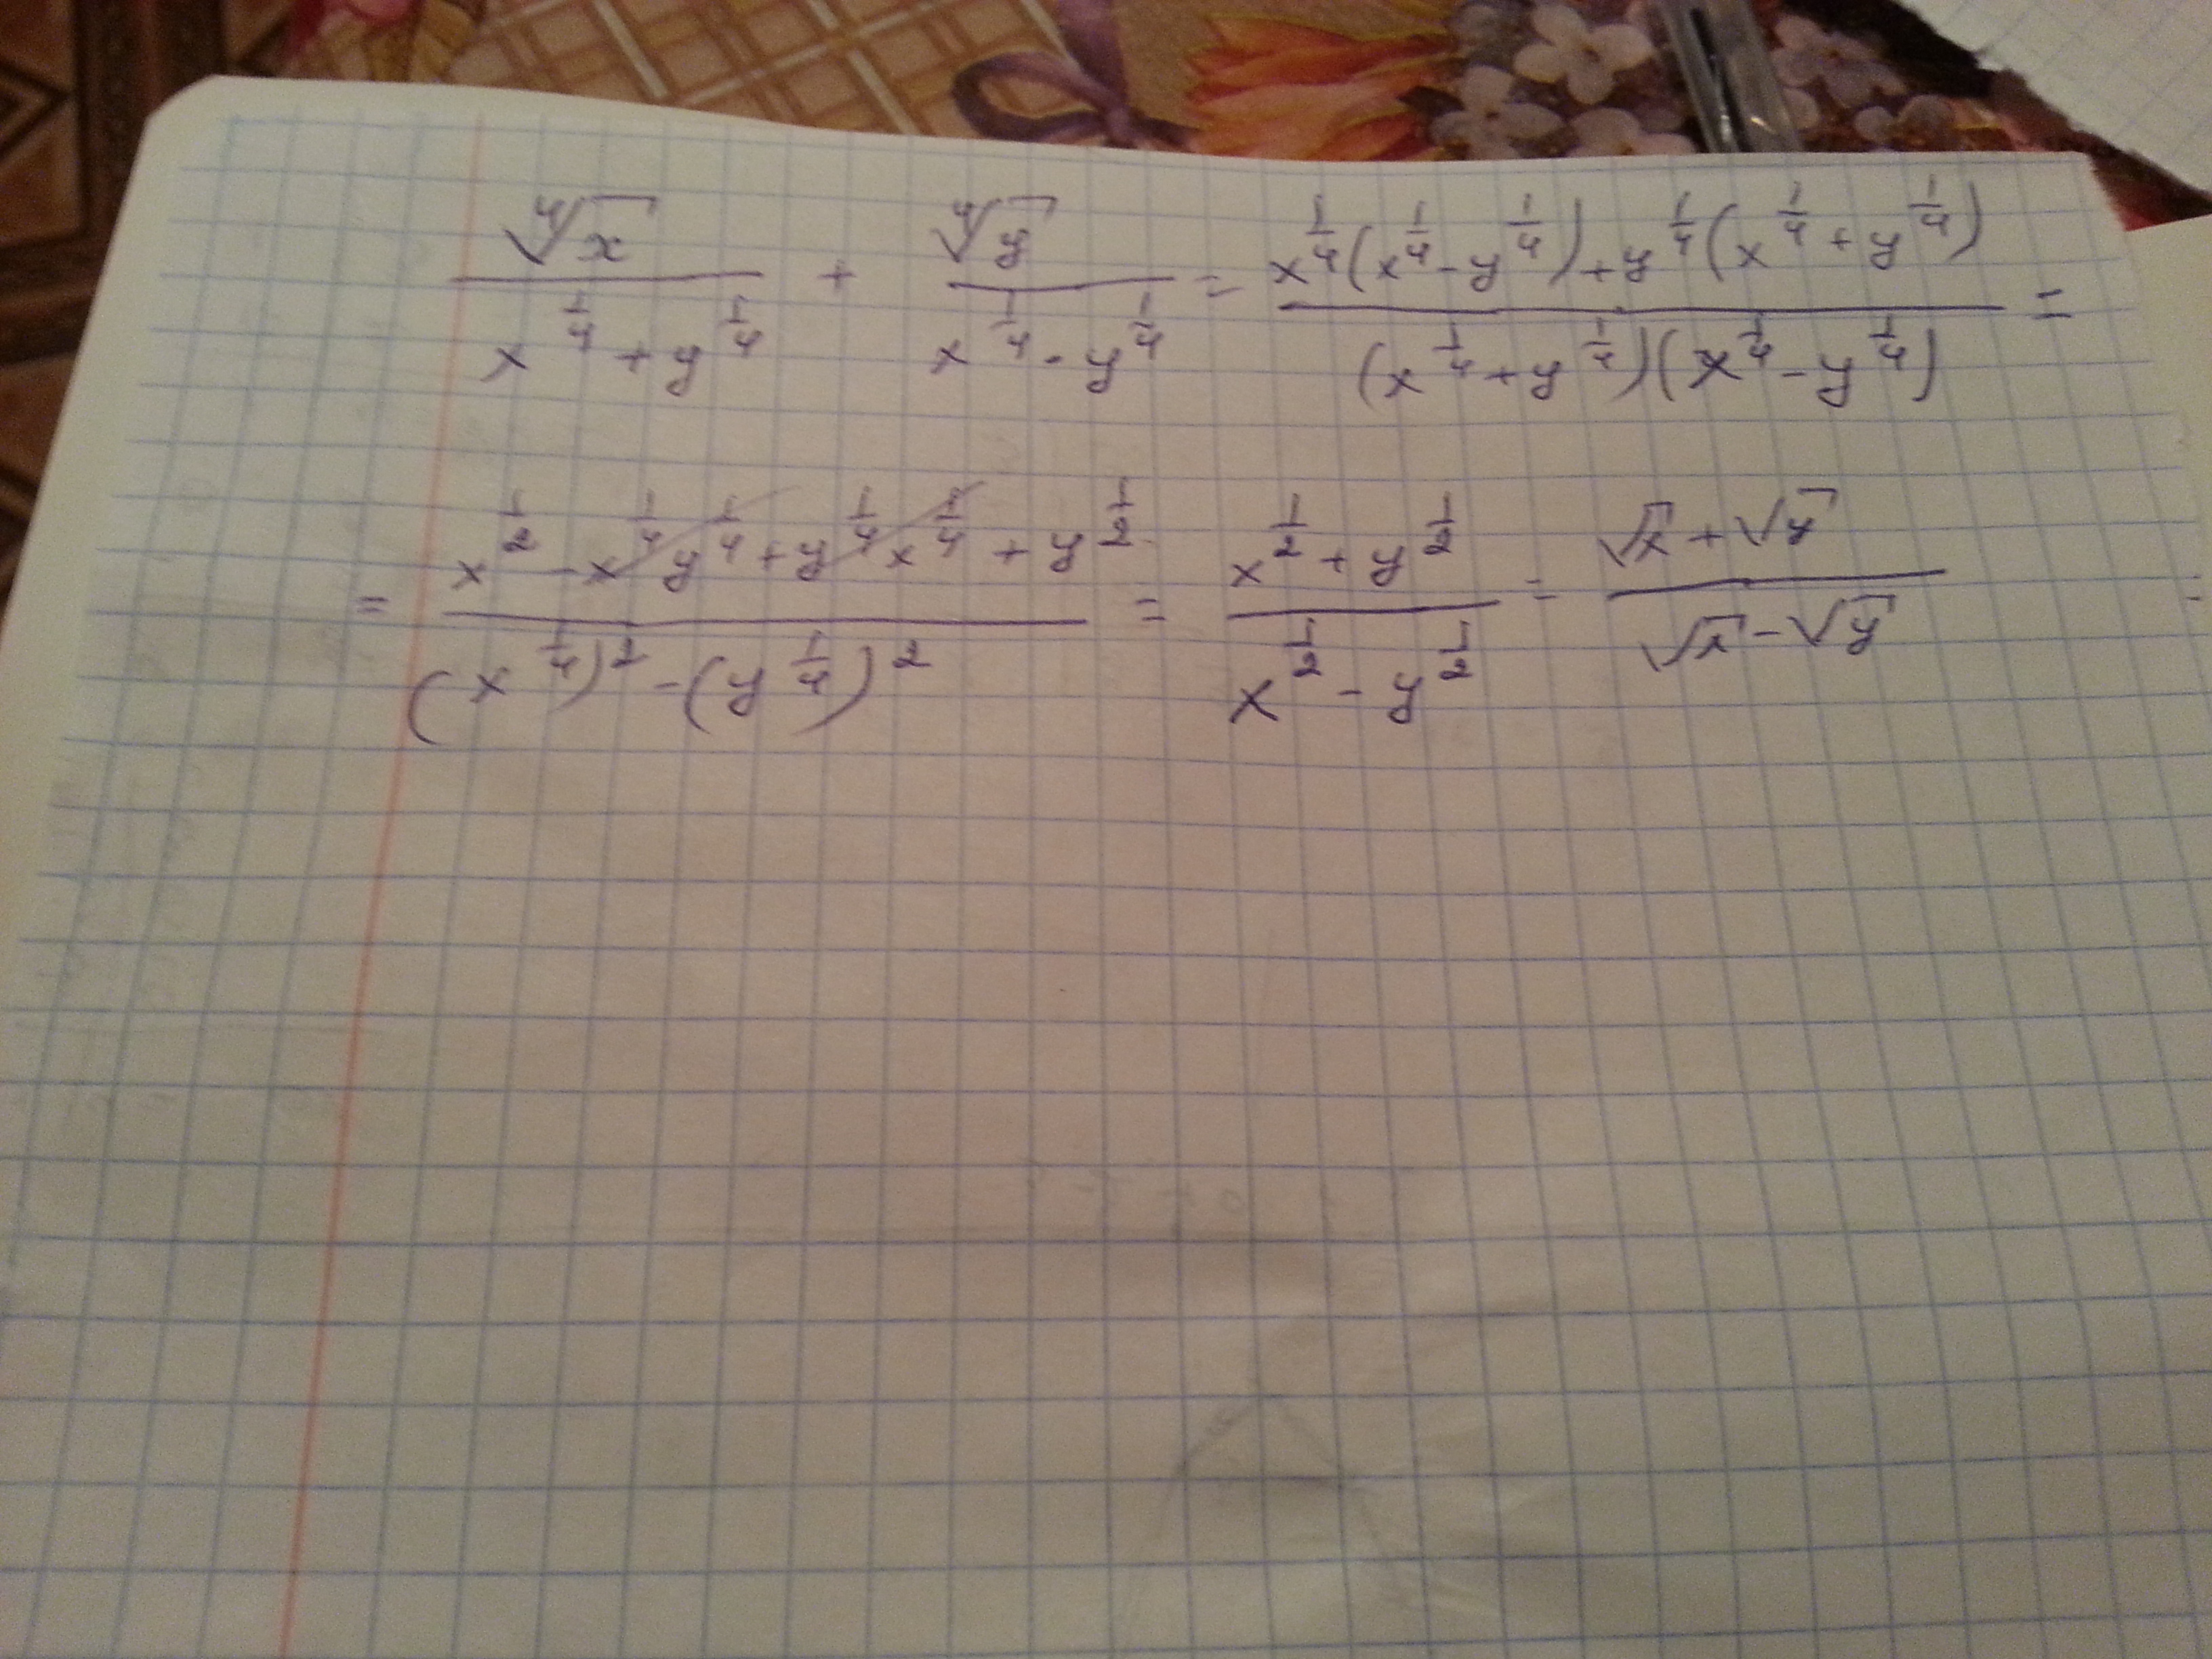 \frac{\sqrt[4]{x}}{x^{\frac{1}{4}}+y^{\frac{1}{4}}} + \frac{\sqrt[4]{y}}{x^{\frac{1}{4}}-y^{\frac{1}{4}}} = \frac{x^{\frac{1}{4}}(x^{\frac{1}{4}}-y^{\frac{1}{4}})+y^{\frac{1}{4}}(x^{\frac{1}{4}}+y^{\frac{1}{4}})}{(x^{\frac{1}{4}}+y^{\frac{1}{4}})(x^{\frac{1}{4}}-y^{\frac{1}{4}})} =
= \frac{x^{\frac{1}{2}}-x^{\frac{1}{4}}y^{\frac{1}{4}}+y^{\frac{1}{4}}x^{\frac{1}{4}}+y^{\frac{1}{2}}}{(x^{\frac{1}{4}})^2-(y^{\frac{1}{4}})^2} = \frac{x^{\frac{1}{2}}+y^{\frac{1}{2}}}{x^{\frac{1}{2}}-y^{\frac{1}{2}}} = \frac{\sqrt{x}+\sqrt{y}}{\sqrt{x}-\sqrt{y}}